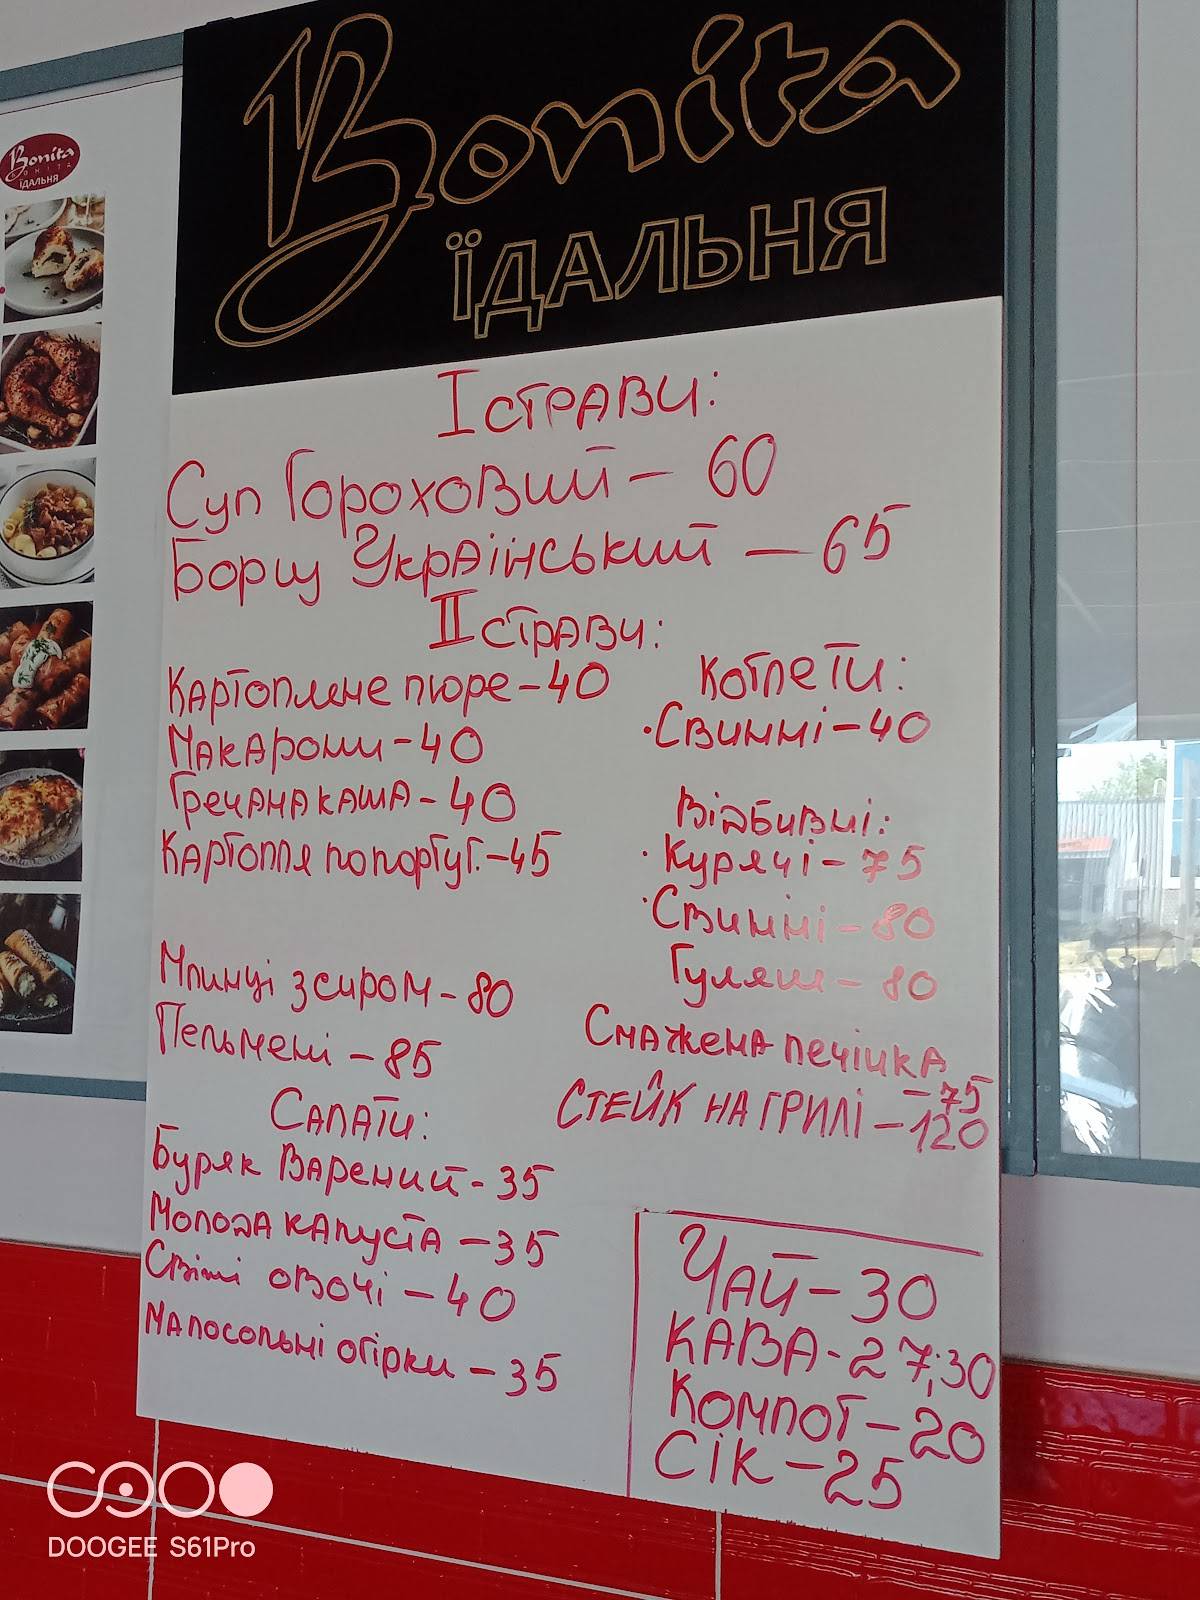 Bonita
ЇДАЛЬНЯ
Bonita
BONITA
ЇДАЛЬНЯ
І страви:
Суп Гороховий – 60
Борщ Український – 65
ІІ страви:
Картопляне пюре – 40
Макарони – 40
Гречана каша – 40
Картопля по португ. – 45
Млинці з сиром – 80
Пельмені – 85
Котлети:
·Свинні – 40
Відбивні:
·Курячі – 75
·Свинні – 80
Гуляш – 80
Смажена печінка
– 75
Стейк на грилі – 120
Салати:
Буряк Варений – 35
Молода капуста – 35
Свіжі овочі – 40
Малосольні огірки – 35
Чай – 30
Кава - 27;30
Компот – 20
Сік – 25
DOOGEE S61Pro